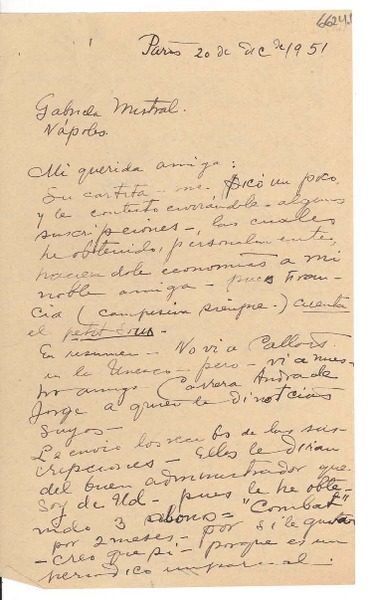 6624.1
Paris 20 de Dic de 1951
Gabriela Mistral.
Nápoles.
Mi querida amiga:
Su cartita - me picó un poco
y le contesto enviándole - algunas
suscripciones -, las cuales
he obtenido, personalmente,
haciendole economías a mi
noble amiga - pues Fran-
cia (campesina siempre.) cuenta
el petit sous
En resumen - No vi a Callois
en la Unesco - pero - vi a nues-
tro amigo Carrera Andrade
Jorge a quien le di noticias
suyas -
Le envio los recibos de las sus-
cripciones - Ellos le diran
del buen administrador que
soy de Ud - pues le he obte-
nido 3 abonos = "Combat"
por 2 meses - por si le gusta
- creo que si - porque es un
periódico imparcial: